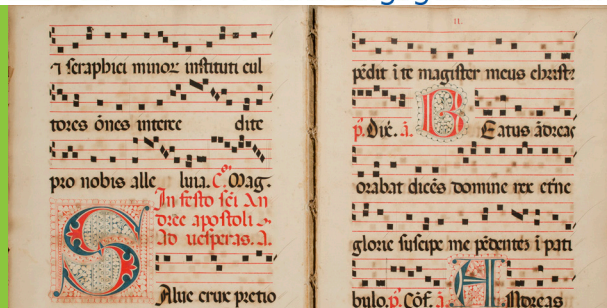 ⁊ seraphici minoꝝ instituti cul
tores õnes interce dite
pro nobis alle luia. C̃. Mag.
In festo sc̃i An
dree apostoli
Ad uesperas. ã.
Salue crux pretio
II.
pẽdit i te magister meus christꝰ
p̃. Dic̃. ã. Beatus ãdreas
orabat dicẽs domine rex etᵉne
glorie suscipe me pẽdentẽ i pati
bulo. p̃. Cõf. ã. Andreas